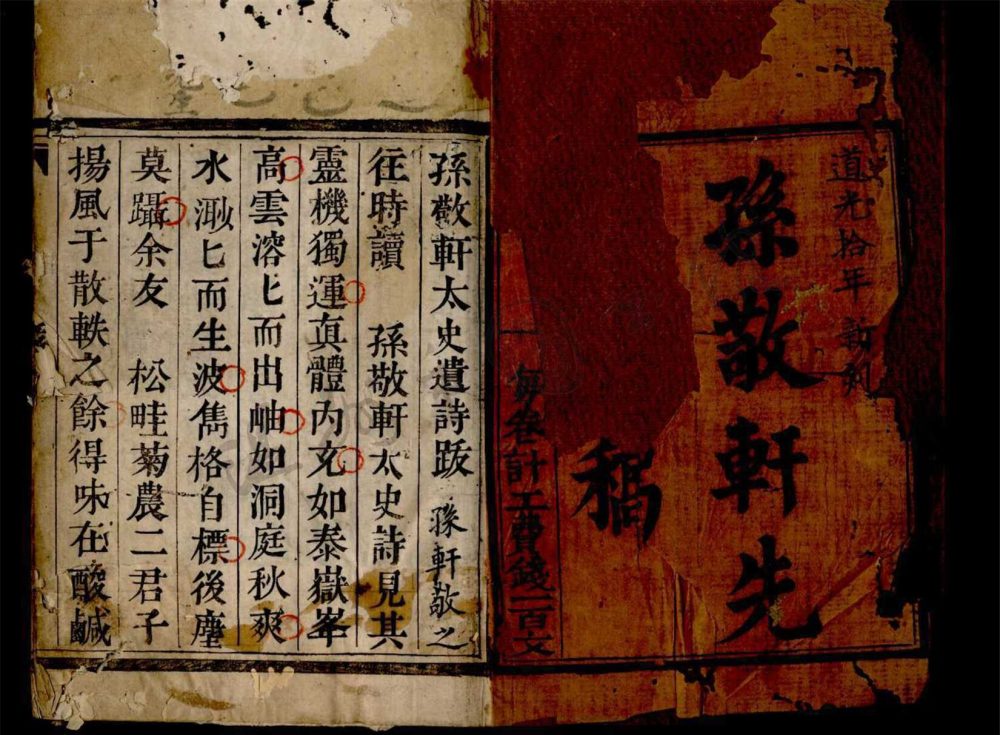 道光拾年 新刻
孫敬軒先
稿
每卷計工費錢二百文
孫敬軒太史遺詩跋 孫軒敬之
往時讀 孫敬軒太史詩見其
靈機獨運真體内充如泰嶽峯
高雲溶匕而出岫如洞庭秋爽
水渺匕而生波雋格自標後塵
莫躡余友 松畦菊農二君子
揚風于散軼之餘得味在酸鹹